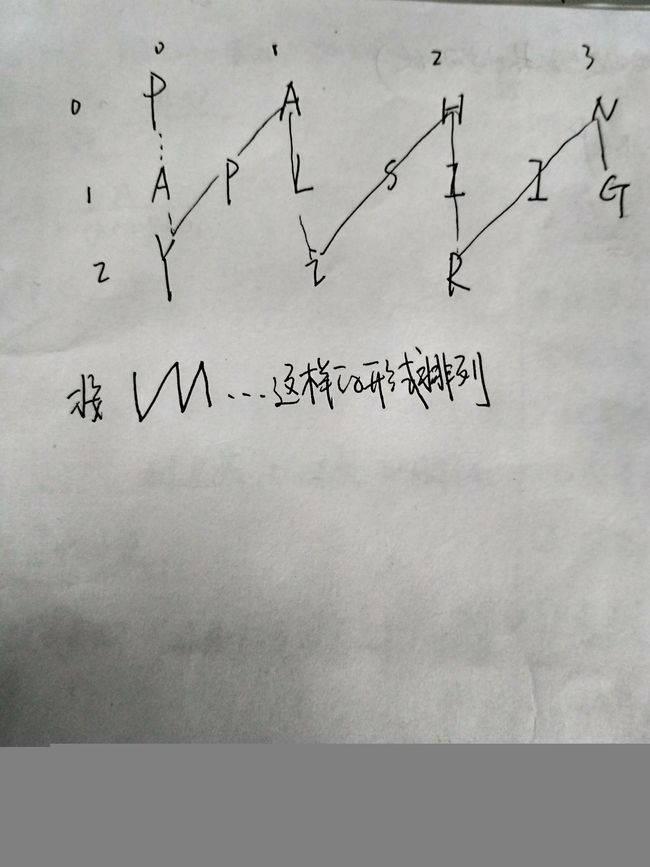 0 1 2 3
0 P A H N
1 A P L S I I G
2 Y I R
按 ... 这样的形式排列